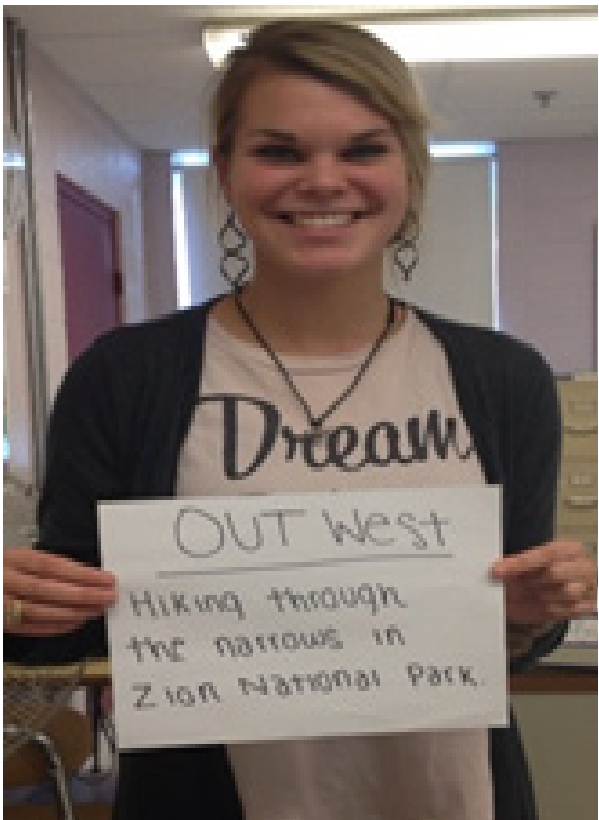 Dream
OUT West
Hiking through
the narrows in
Zion National Park.